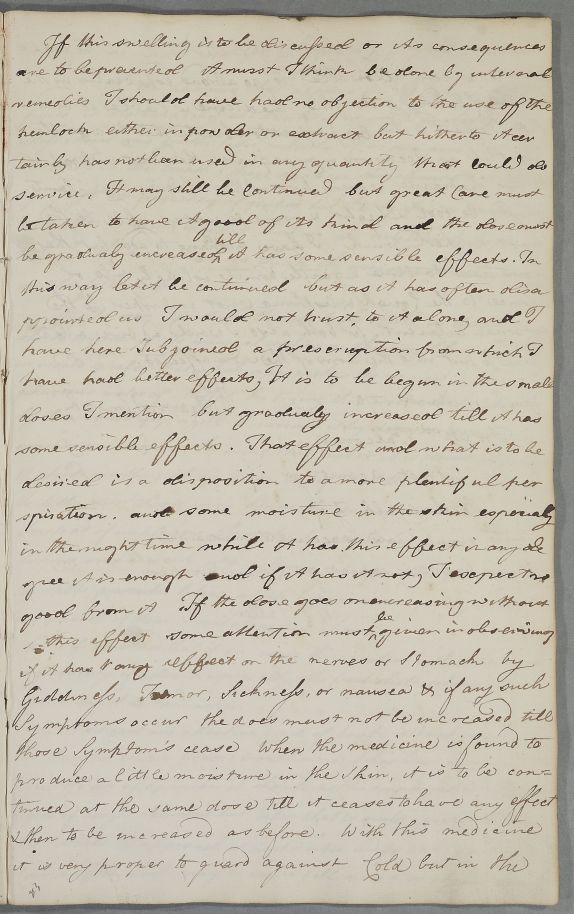 If this swelling is to be discussed or its consequences
are to be prevented it must I think be done by internal
remedies I should have had no objection to the use of the
hemlock either in powder or extract but hitherto it cer
tainly has not been used in any quantity that could do
service. It may still be continued but great Care must
be taken to have it good of its kind and the dose must
be gradually encreased till it has some sensible effects. In
this way let it be continued but as it has often disa
ppointed us I would not trust, to it alone, and I
have here Subjoined a prescription from which I
have had better effects, It is to be begun in the small
doses I mention but gradually increased till it has
some sensible effects. That effect and what is to be
desired is a disposition to a more plentiful per
spiration. and some moisture in the skin especially
in the night time while it has this effect in any de
gree it is enough and if it has it not, I expect no
good from it If the dose goes on encreasing without
this effect some attention must be given in observing
if it has any effect on the nerves or Stomach by
Giddiness, Tremor, Sickness, or nausea & if any such
Symptoms occur the does must not be increased till
those Symptom's cease When the medicine is found to
produce a little moisture in the Skin, it is to be con=
tinued at the same dose till it ceases to have any effect
& then to be increased as before. With this medicine
it is very proper to guard against Cold but in the